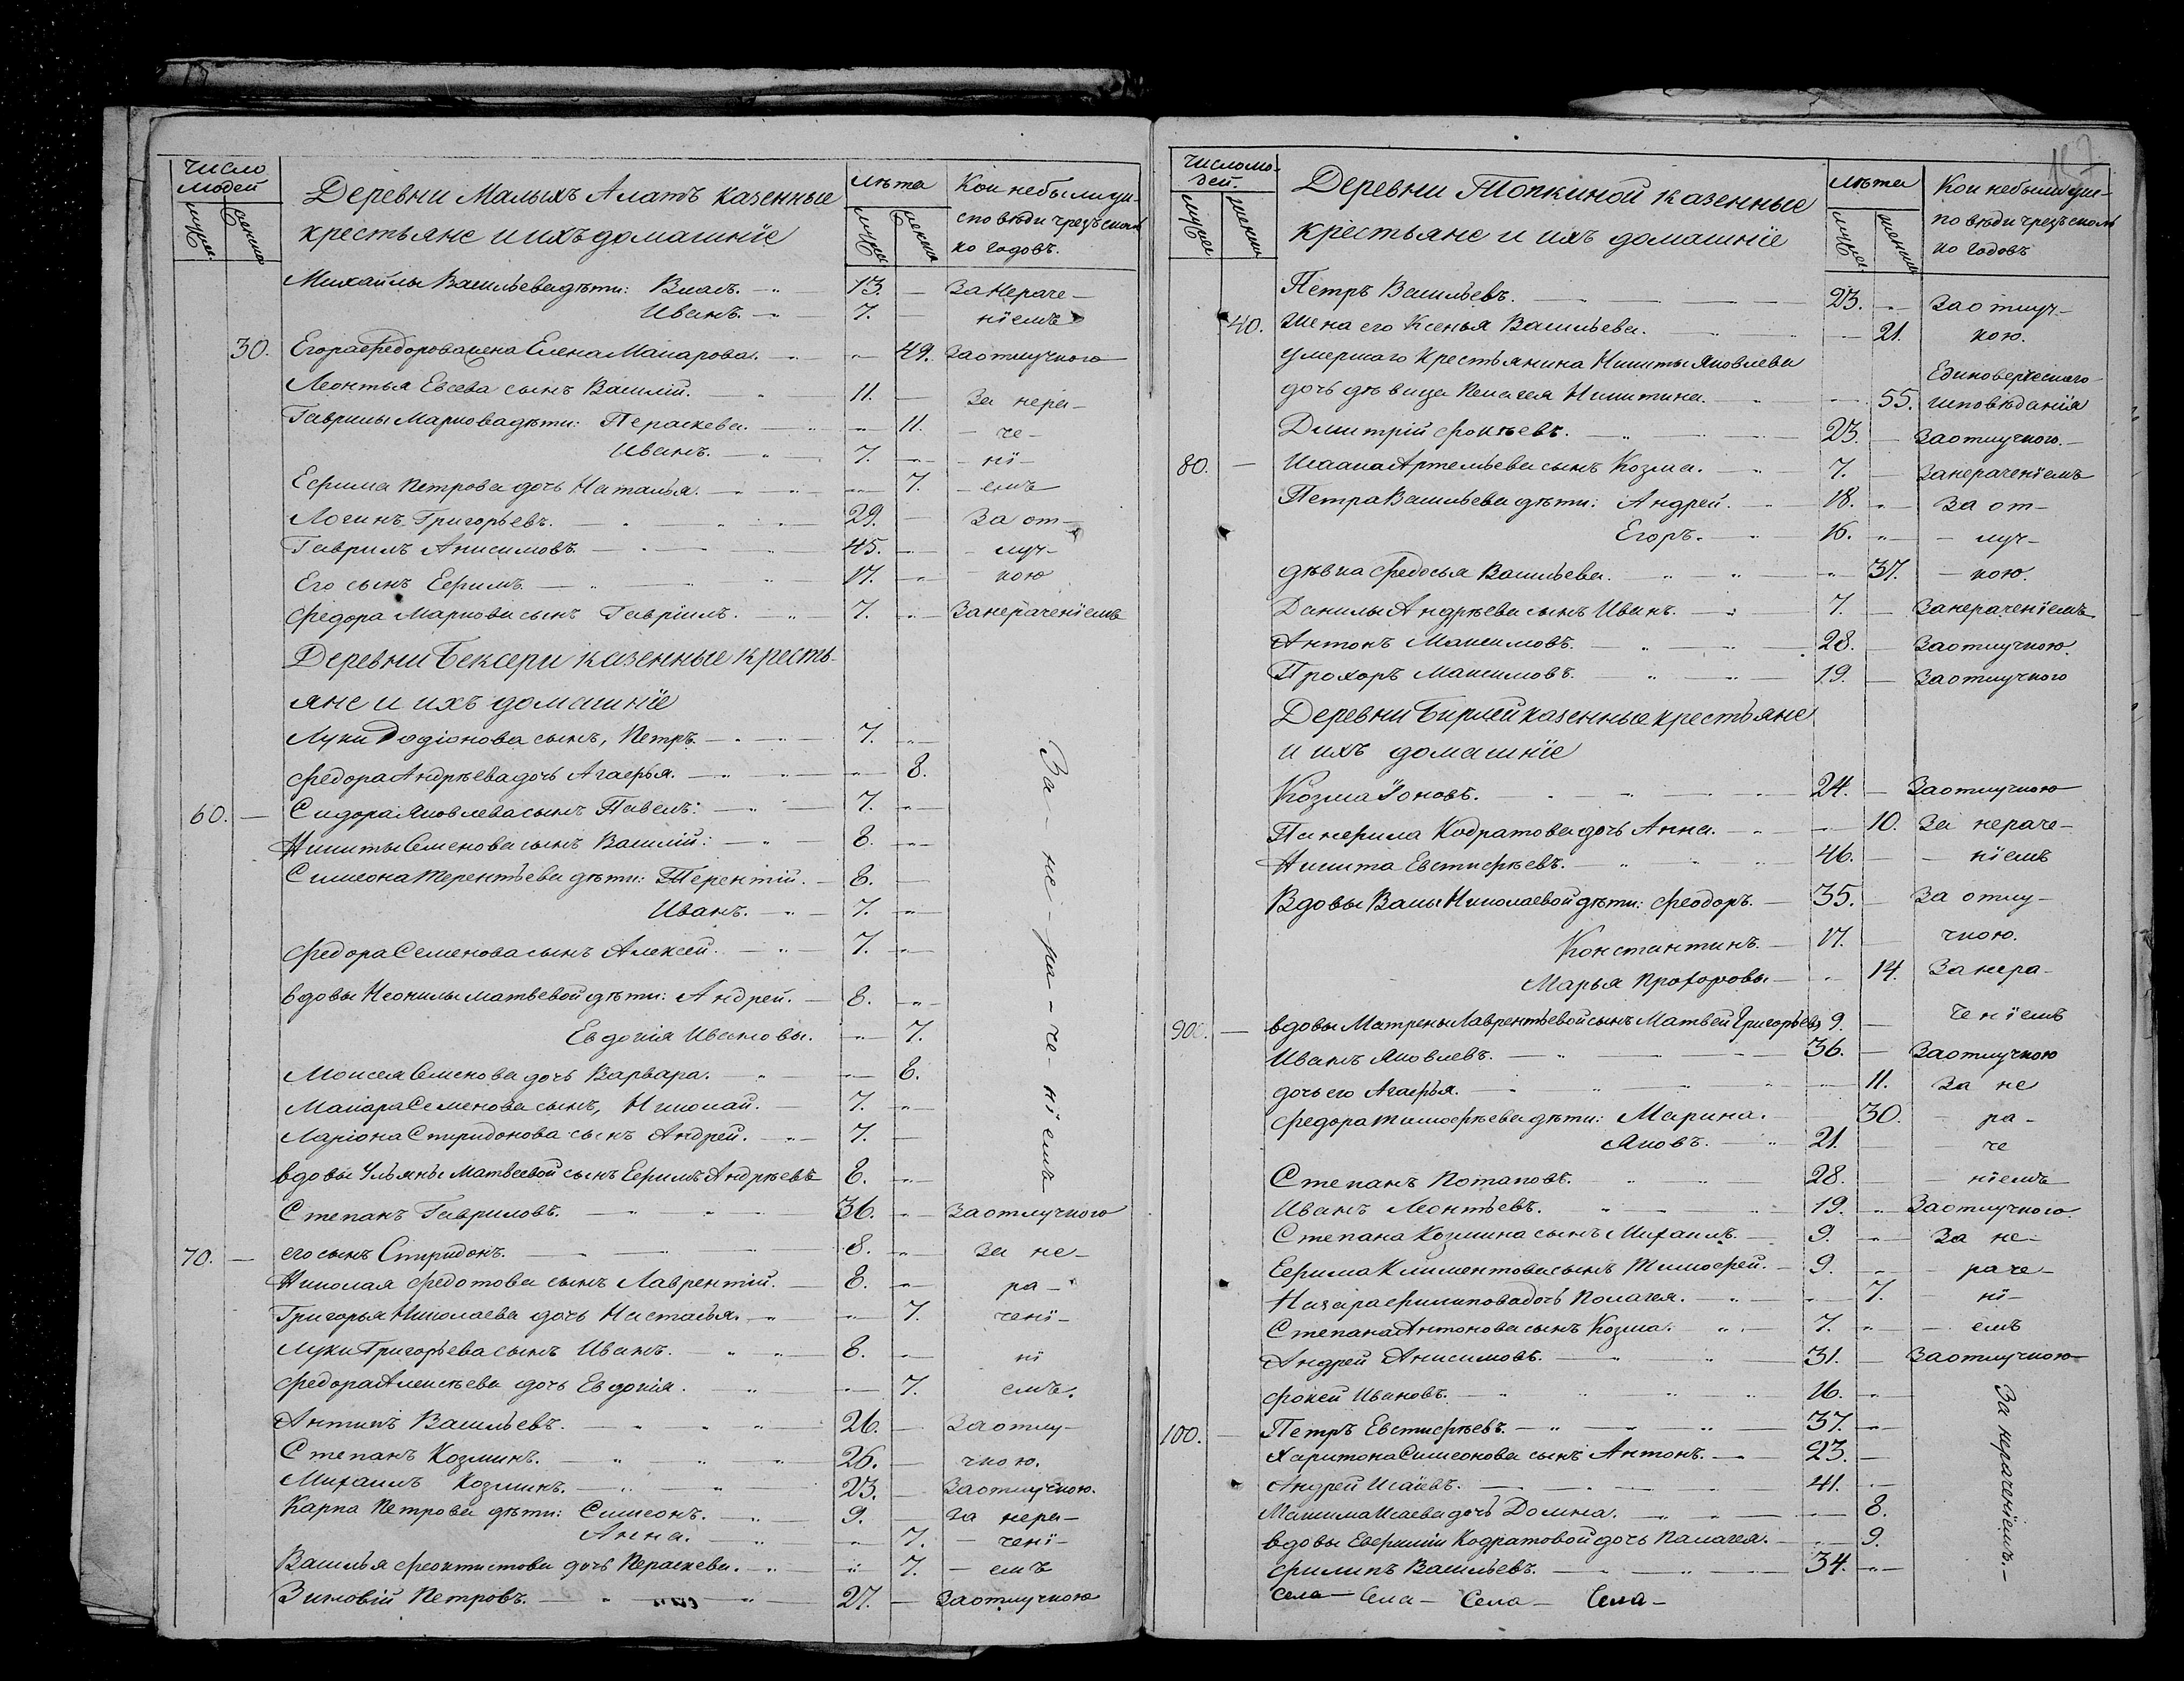 число людей
мужес. женска
Деревни Малыхъ Алатъ казенные
крестьяне и ихъ домашнїе
лѣта
мужес женска
Кои небыли уи-
споведи чрезъ сколь
ко годовъ.
Михайлы Васильева дѣти: Власъ. 13. — За Нераче-
Иванъ. 7. — нїемъ
30. Егора Федорова жена Елена Макарова. 49. За отлучкою
Леонтья Евсева сынъ Василїй. 11. — За нера-
Гаврилы Маркова дѣти: Параскева. 11. — че-
Иванъ. 7. — нї-
Ефима Петрова дочь Наталья. 7. — емъ
Логинъ Григорьевъ. 29. — За от-
Гаврилъ Анисимовъ. 45. — луч-
Его сынъ Ефимъ 17. — кою
Федора Маркова сынъ Гаврїилъ. 7. — За нераченїемъ
Деревни Бексери казенные кресть-
яне и ихъ домашнїе
Луки Родїонова сынъ, Петръ. 7.
Федора Андрѣева дочь Агафья. 8.
60. — Сидора Яковлева сынъ Павелъ: 7.
Никиты Семенова сынъ Василїй: 8.
Симеона Терентьева дѣти: Терентїй. 8.
Иванъ. 7.
Федора Семенова сынъ Алексей. 7.
вдовы Неонилы Матвевой дѣти: Андрей. 8.
Евдокїя Ивановы. 7.
Моисея Семенова дочь Варвара. 8.
Макара Семенова сынъ, Николай. 7.
Ларїона Спиридонова сынъ Андрей. 7.
вдовы Ульяны Матвеевой сынъ Ефимъ Андрѣевъ 8.
За - не - ра - че нїемъ
Степанъ Гавриловъ. 36. — За отлучкою
70. — его сынъ Спиридонъ. 8. — За не-
Николая Федотова сынъ Лаврентїй. 8. — ра-
Григорья Николаева дочь Настасья. 7. ченї-
Луки Григорьева сынъ Иванъ. 8. нї
Федора Алексѣева дочь Евдокїя. 7. емъ.
Антипъ Васильевъ. 26. — За отлу-
Степанъ Козминъ. 26. — чкою.
Михаилъ Козминъ. 23. — За отлучкою.
Карпа Петрова дѣти: Симеонъ. 9. — За нера-
Анна. 7. — ченї-
Василья Феоктистова дочь Параскева. 7. — емъ
Зиновїй Петровъ. 27. — За отлучкою
число лю-
дей.
мужес женска
Деревни Топкиной казенные
крестьяне и ихъ домашнїе
лѣта
мужес женска
Кои небыли уис-
поведи чрезъ сколь
ко годовъ
Петръ Васильевъ. 23. За отлуч-
40. Жена его Ксенья Васильева. 21. кою.
умершаго Крестьянина Никиты Яковлева
Единоверческаго
дочь дѣвица Пелагея Никитина. 55. исповѣданїя
Димитрїй Фокѣевъ. 23. — За отлучкою.
80. — Исаака Артемьева сынъ Козма. 7. — За нераченїемъ
Петра Васильева дѣти: Андрей. 18. За от-
Егоръ. 16. — луч-
дѣвка Федосья Васильева. 37. — кою.
Данилы Андрѣева сынъ Иванъ. 7. — За нераченїемъ
Антонъ Максимовъ. 28. — За отлучкою.
Прохоръ Максимовъ. 19. — За отлучкою
Деревни Бирлей казенные крестьяне
и ихъ домашнїе
Козма Iоновъ. 24. — За отлучкою
Панфила Кодратова дочь Анна. 10. За нераче-
Никита Евстифѣевъ. 46. — нїемъ
Вдовы Васы Николаевой дѣти: Феодоръ. 35. — За отлу-
Константинъ. 17. — чкою.
Марья Прохоровы 14. За нера-
90. — вдовы Матрены Лаврентьевой сынъ Матвей Григорьевъ 9. — ченїемъ
Иванъ Яковлевъ. 36. — За отлучкою
дочь его Агафья. 11. За не
Федора Тимофѣева дѣти: Марина. 30. — ра-
Яковъ. 21. — че
Степанъ Потаповъ. 28. — нїемъ
Иванъ Леонтьевъ. 19. За отлучкою.
Степана Козмина сынъ Михаилъ. 9. За не-
Ефима Климентова сынъ Тимофей. 9. — раче-
Назара Филипова дочь Палагея. 7. — нї-
Степана Антонова сынъ Козма. 7. — емъ
Андрей Анисимовъ. 31. — За отлучкою
Фокей Ивановъ. 16.
100. — Петръ Евстифѣевъ. 37.
Харитона Симеонова сынъ Антонъ. 23.
Андрей Исаевъ. 41.
Максима Исаева дочь Домна. 8.
вдовы Евфимїи Кодратовой дочь Палагея. 9.
Филипъ Васильевъ. 34.
За нераченїемъ.
Села — Села — Села — Села —